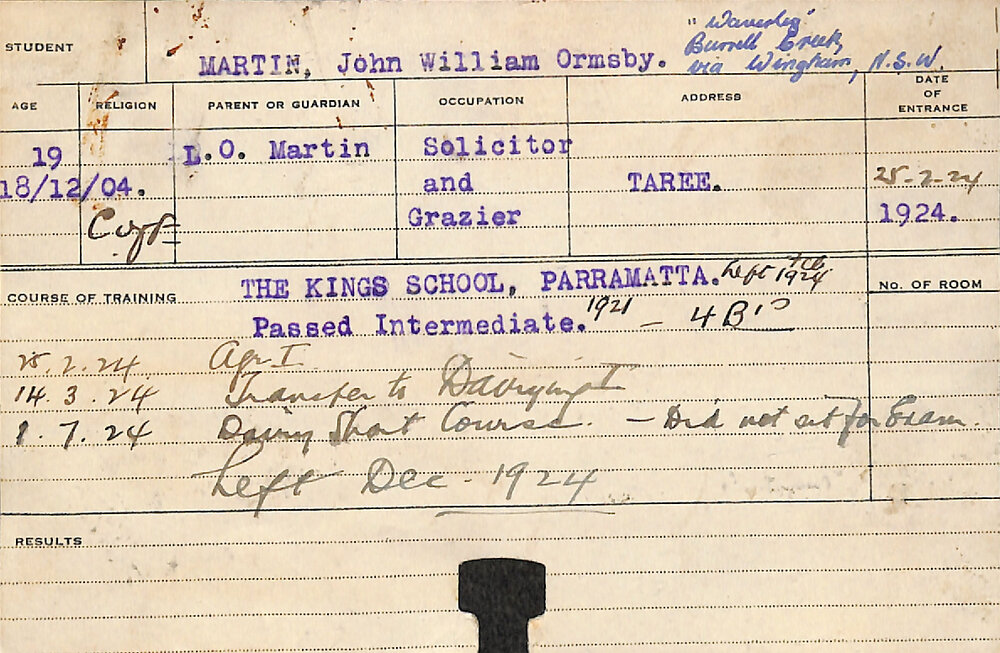 "Waverley"
Burrell Creek,
via Wingham, N.S.W.
STUDENT
MARTIN, John William Ormsby.
AGE RELIGION PARENT OR GUARDIAN OCCUPATION ADDRESS DATE OF ENTRANCE
19 L.O. Martin Solicitor
18/12/04. and TAREE. 25-2-24
Grazier 1924.
COURSE OF TRAINING THE KINGS SCHOOL, PARRAMATTA. Left Feb 1924 No. OF ROOM
Passed Intermediate. 1921 - 4 B's
25.2.24 Agr. I
14.3.24 Transfer to Dairying I
1.7.24 Dairy Short Course. - Did not sit for Exam.
Left Dec. 1924
RESULTS